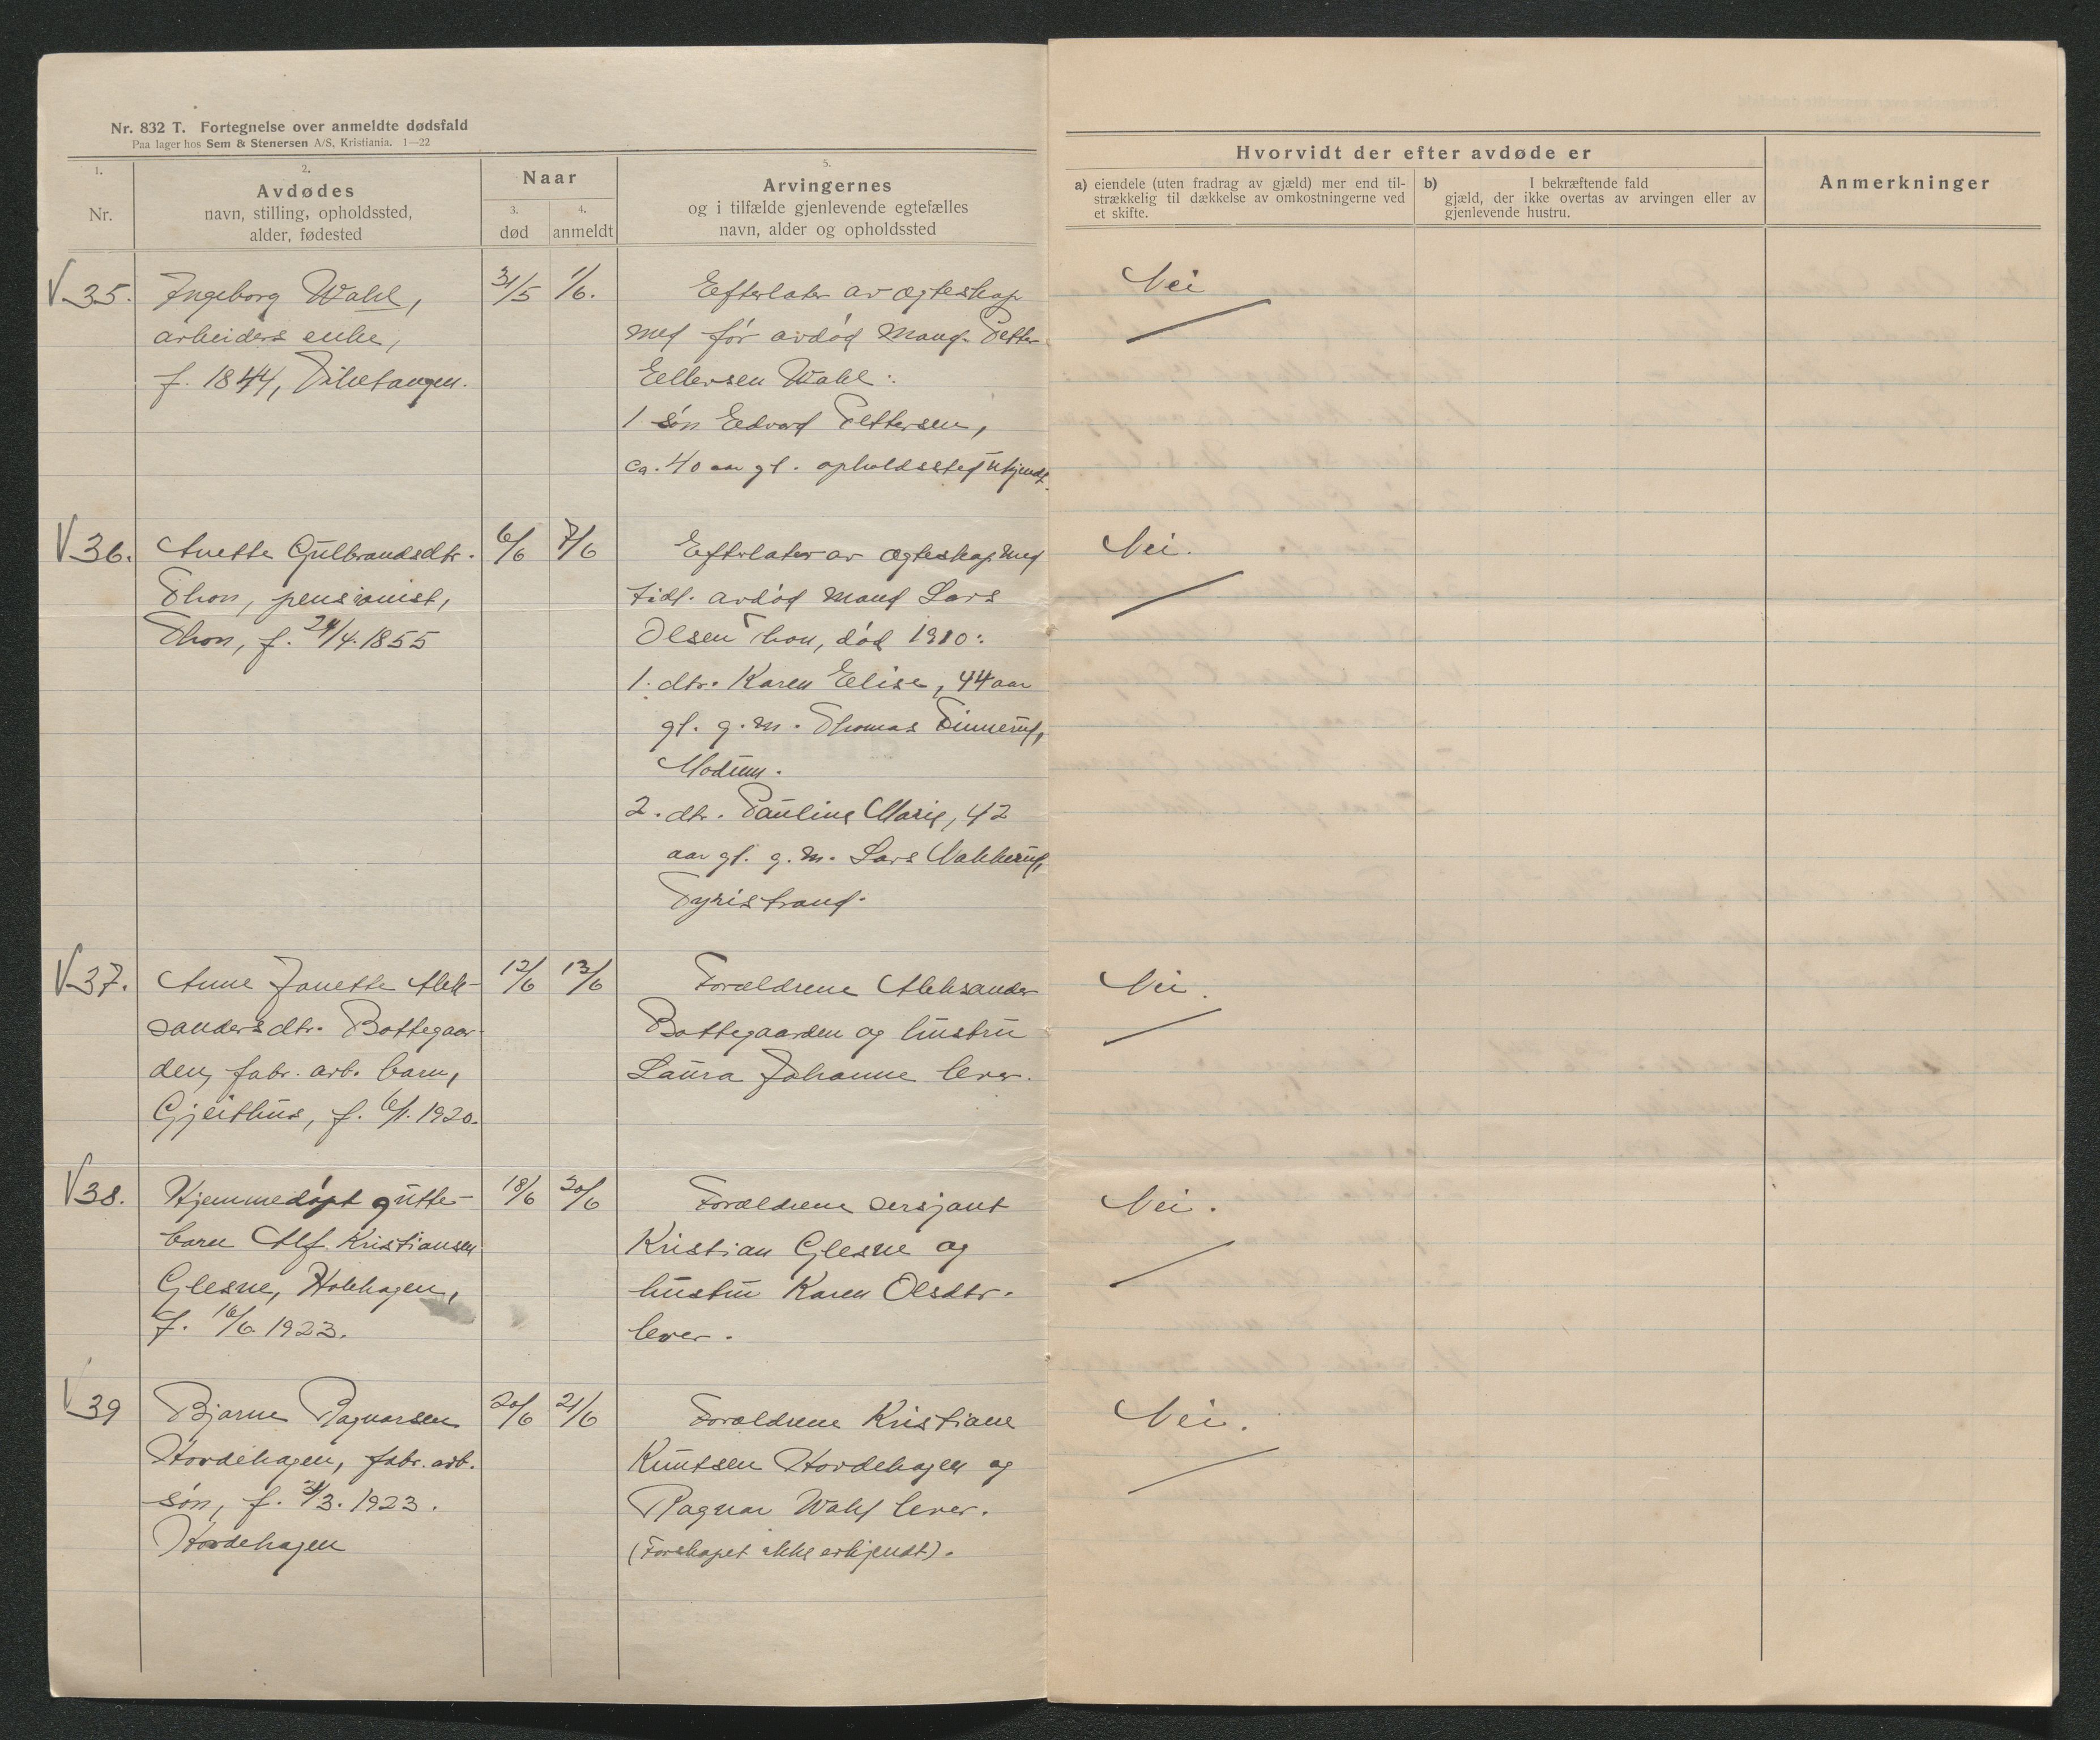 Nr. 832 T. Fortegnelse over anmeldte dødsfald
Paa lager hos Sem & Stenersen A/S, Kristiania. 1—22
1.
Nr.
2.
Avdødes
navn, stilling, opholdssted,
alder, fødested
Naar
3.
død
4.
anmeldt
5.
Arvingernes
og i tilfælde gjenlevende egtefælles
navn, alder og opholdssted
Hvorvidt der efter avdøde er
a) eiendele (uten fradrag av gjæld) mer end til-
strækkelig til dækkelse av omkostningerne ved
et skifte.
b) I bekræftende fald
gjæld, der ikke overtas av arvingen eller av
gjenlevende hustru.
Anmerkninger
V 35.
Ingeborg Wahl,
arbeiders enke,
f. 1844, Viketangen.
31/5
1/6.
Efterlater av egteskap
med før avdød mand Petter
Ellersen Wahl:
1 søn Edvard Pettersen,
ca. 40 aar gl. opholdssted ukjendt.
Nei
V 36.
Anette Gulbrandsdtr.
Thon, pensionist,
Thon, f. 24/4. 1855
6/6
7/6
Efterlater av egteskap med
tidl. avdød mand Lars
Olsen Thon, død 1910:
1. dtr. Karen Elise, 44 aar
gl. g. m. Thomas Finnerud,
Modum.
2. dtr. Pauline Marie, 42
aar gl. g. m. Lars Nakkerud,
Tyristrand.
Nei.
V 37.
Anne Janette Alek-
sandersdtr. Bottegaar-
den, fabr. arb. barn,
Gjeithus, f. 6/1. 1920.
12/6
13/6
Forældrene Aleksander
Bottegaarden og hustru
Laura Johanne lever.
Nei.
V 38.
Hjemmedøpt gutte-
barn Alf Kristiansen
Glesne, Holehagen,
f. 16/6 1923.
18/6
20/6
Forældrene sersjant
Kristian Glesne og
hustru Karen Olsdtr.
lever.
Nei.
V 39
Bjarne Ragnarsen
Hovdehagen, fabr. arb.
søn, f. /3. 1923.
Hovdehagen
20/6
21/6
Forældrene Kristiane
Knutsen Hovdehagen og
Ragnar Wahl lever.
(Farskapet ikke erkjendt).
Nei.